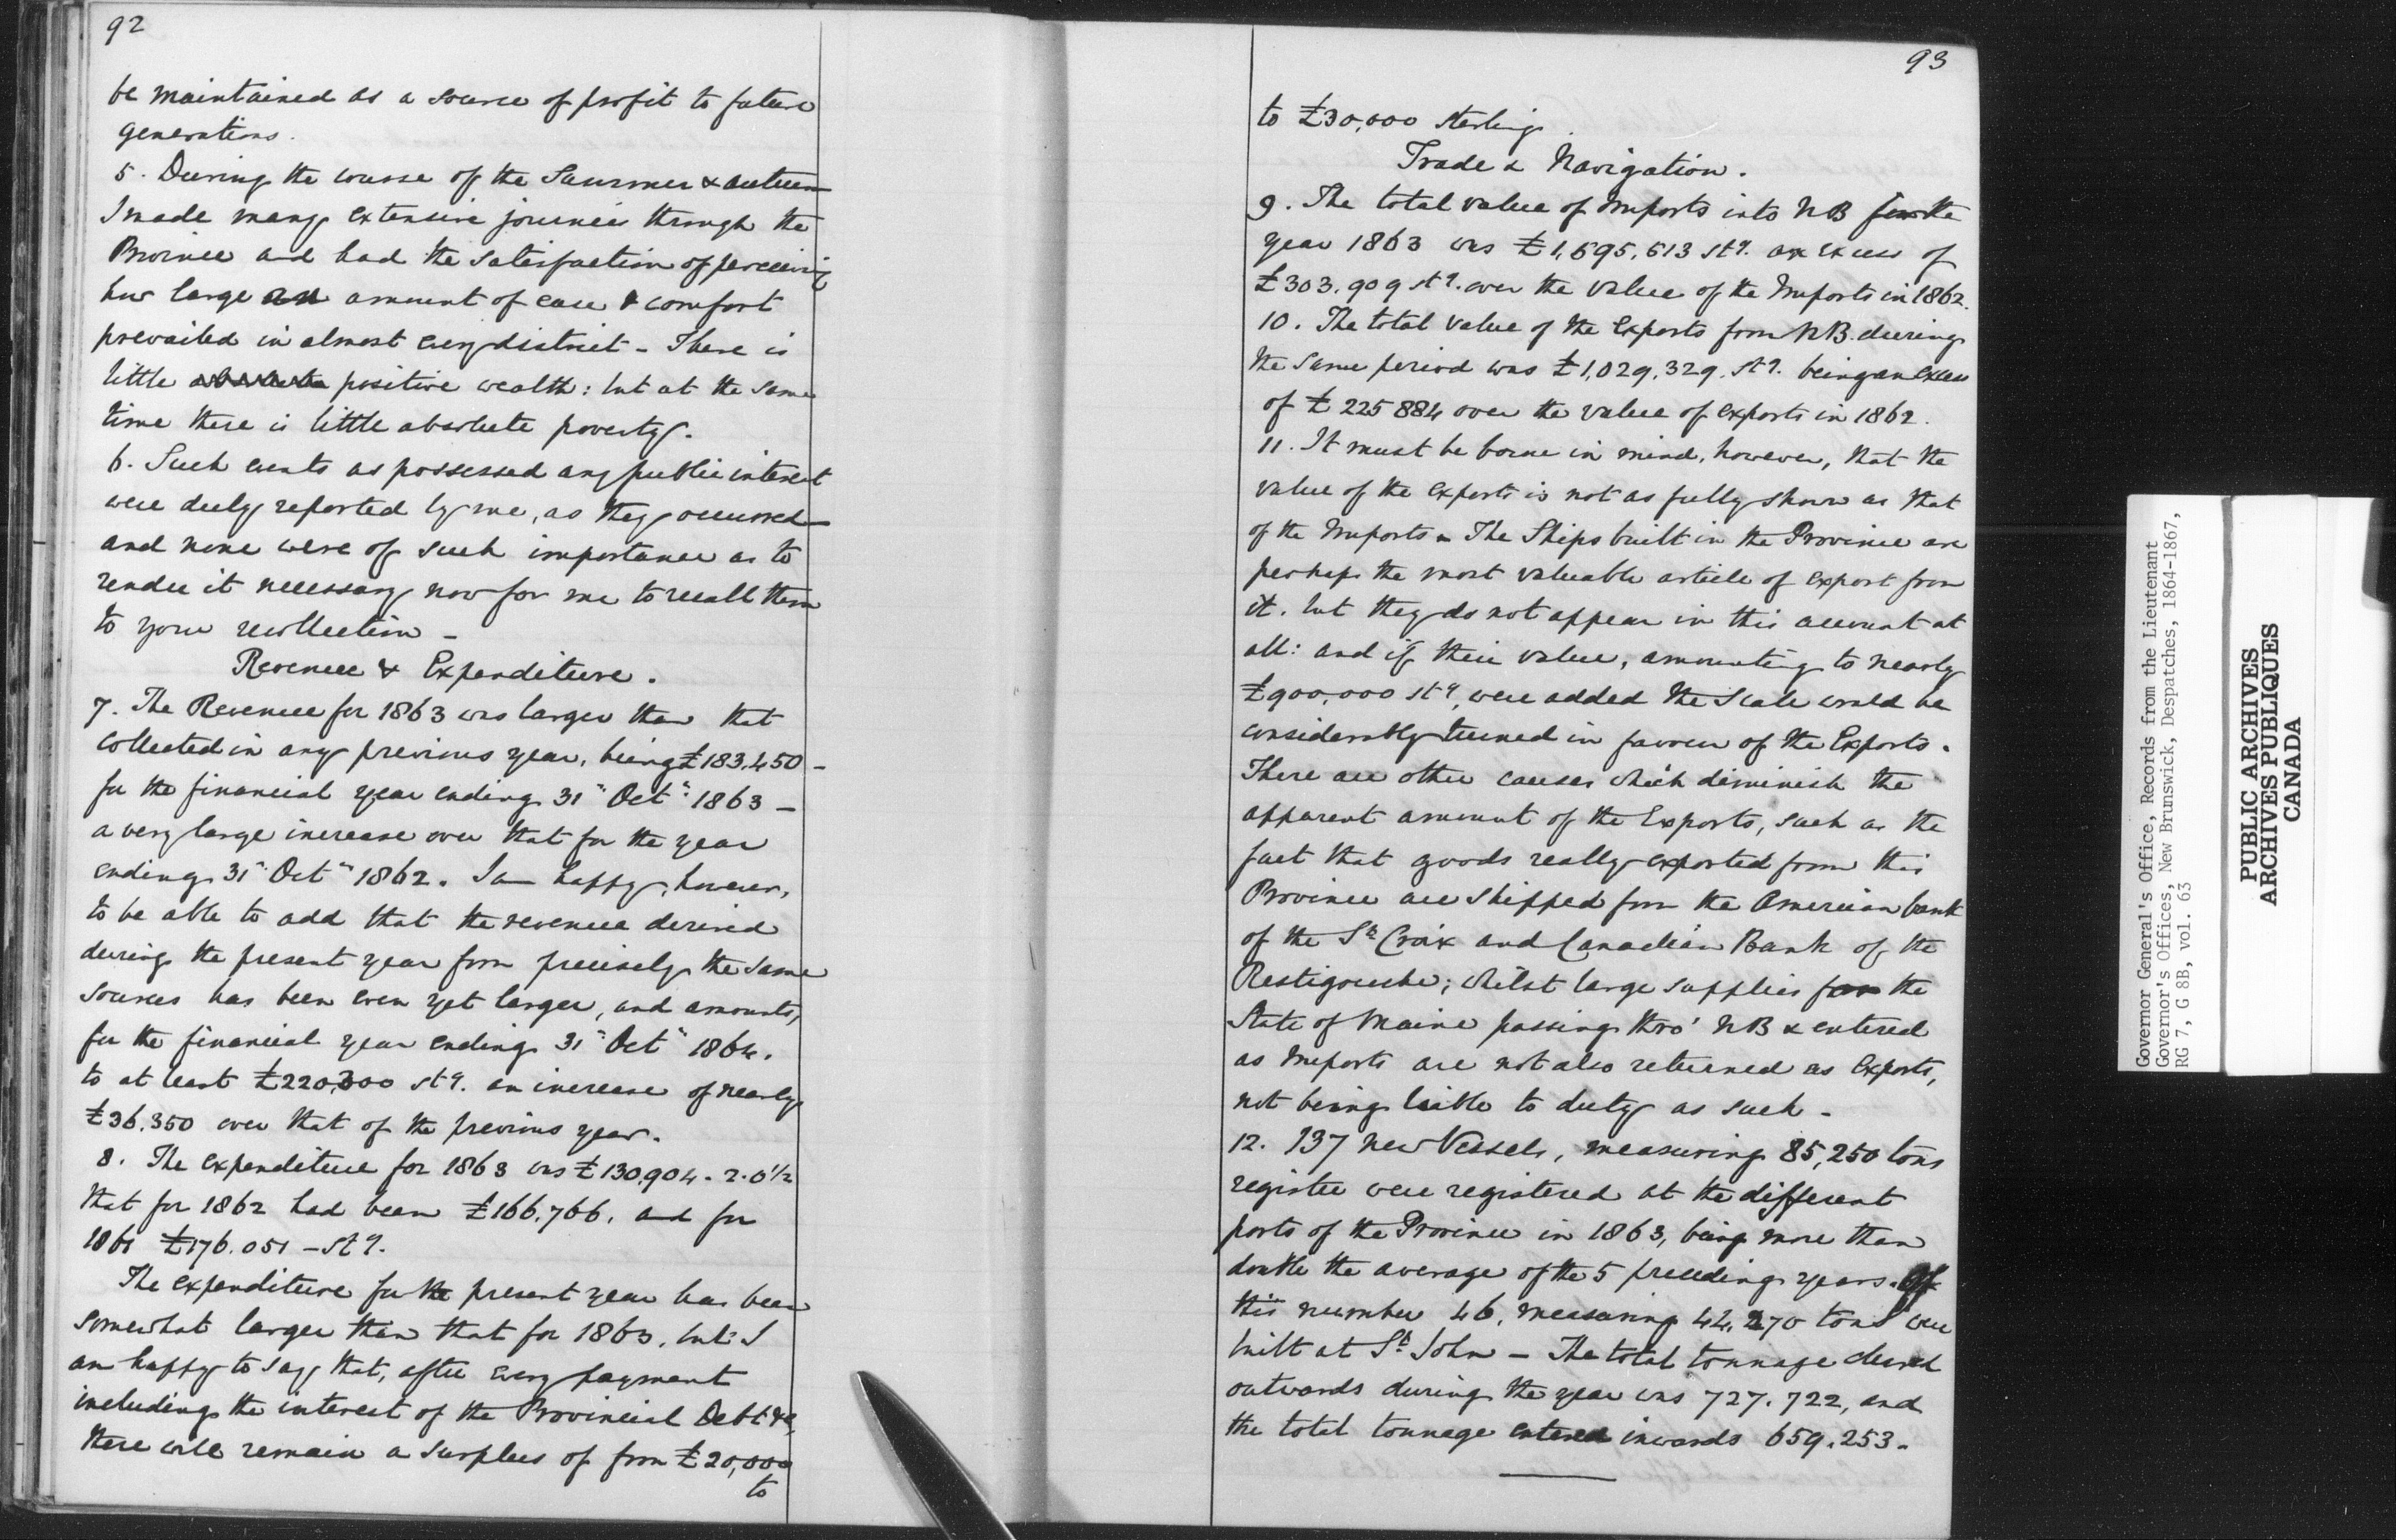 92
be maintained as a source of profit to future
generations.
5. During the course of the Summer & autumn
I made many extensive journies through the
Province and had the satisfaction of perceiving
how large an amount of ease & comfort
prevailed in almost every district – There is
little absolute positive wealth: but at the same
time there is little absolute poverty.
6. Such events as possessed any public interest
were duly reported by me, as they occurred
and none were of such importance as to
render it necessary now for me to recall them
to your recollection –
Revenue & Expenditure.
7. The Revenue for 1863 was larger than that
collected in any previous year, being £183,450 –
for the financial year ending 31" Oct" 1863 –
a very large increase over that for the year
ending 31" Oct" 1862. I am happy, however,
to be able to add that the revenue derived
during the present year from precisely the same
sources has been even yet larger, and amounts,
for the financial year ending 31" Oct" 1864.
to at least £220,300 stg. an increase of nearly
£36.350 over that of the previous year.
8. The expenditure for 1863 was £130,904. 2. 0½
that for 1862 had been £166,766. and for
1861 £176.051 – Stg.
The expenditure for the present year has been
somewhat larger than that for 1863, but I
am happy to say that, after every payment
including the interest of the Provincial Debt &c,
there will remain a surplus of from £20,000
to
93
to £30,000 sterling.
Trade & Navigation.
9. The total value of Imports into NB for the
year 1863 was £1,595,513 stg. an excess of
£303.909 stg. over the value of the Imports in 1862.
10. The total value of the Exports from NB. during
the same period was £1,029,329. stg. being an excess
of £225884 over the value of exports in 1862.
11. It must be borne in mind, however, that the
value of the exports is not as fully shown as that
of the Imports – The Ships built in the Province are
perhaps the most valuable article of export from
it. but they do not appear in this account at
all: and if their value, amounting to nearly
£900,000 stg, were added the scale would be
considerably turned in favour of the Exports.
There are other causes which diminish the
apparent amount of the Exports, such as the
fact that goods really exported from this
Province are shipped from the American bank
of the St Croix and Canadian Bank of the
Restigouche; whilst large supplies for the
State of Maine passing thro' NB & entered
as Imports are not also returned as Exports,
not being liable to duty as such –
12. 137 new Vessels, measuring 85,250 tons
register were registered at the different
ports of the Province in 1863, being more than
double the average of the 5 preceding years. Of
this number 46, measuring 44,270 tons were
built at St John – The total tonnage cleared
outwards during the year was 727.722, and
the total tonnage entered inwards 659.253 –
Governor General's Office, Records from the Lieutenant
Governor's Offices, New Brunswick, Despatches, 1864-1867,
RG 7, G 8B, vol. 63
PUBLIC ARCHIVES
ARCHIVES PUBLIQUES
CANADA